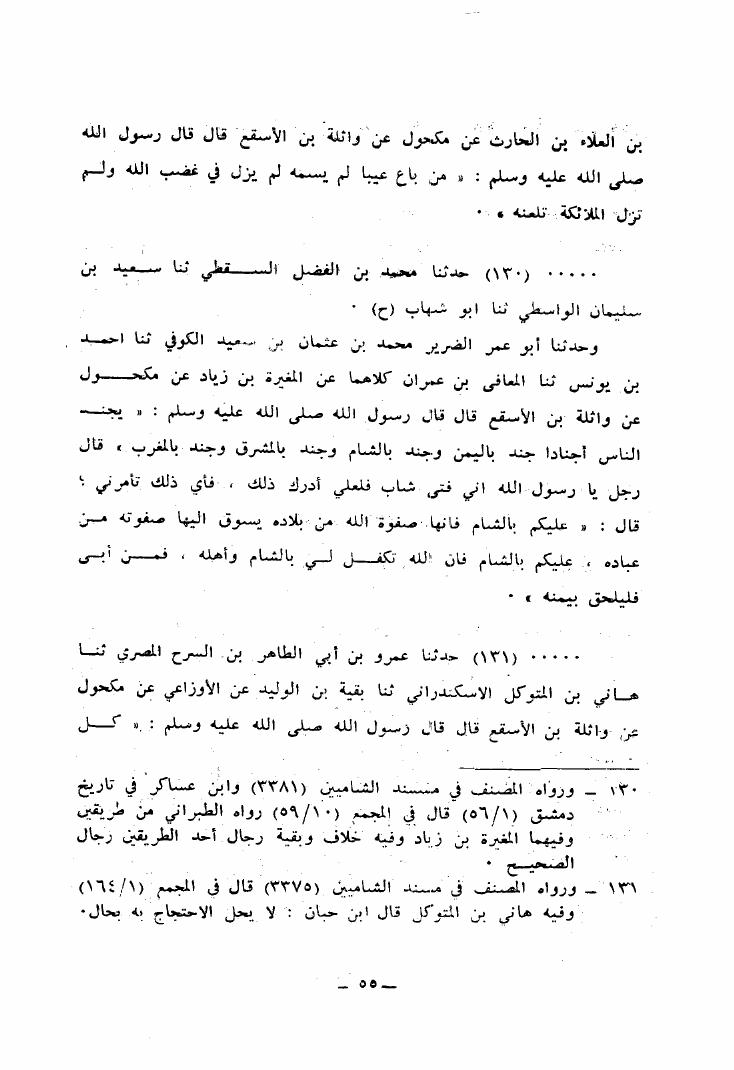 بن العلاء بن الحارث عن مكحول عن واثلة بن الأسقع قال قال رسول الله
صلى الله عليه وسلم : « من باع عيبا لم يسمه لم يزل في غضب الله ولم
تزل الملائكة تلعنه » ٠
٠٠٠٠٠ (١٣٠) حدثنا محمد بن الفضل السقطي ثنا سعيد بن
سليمان الواسطي ثنا ابو شهاب (ح) ٠
وحدثنا أبو عمر الضرير محمد بن عثمان بن سعيد الكوفي ثنا احمد
بن يونس ثنا المعافى بن عمران كلاهما عن المغيرة بن زياد عن مكحول
عن واثلة بن الأسقع قال قال رسول الله صلى الله عليه وسلم : « يجند
الناس أجنادا جند باليمن وجند بالشام وجند بالمشرق وجند بالمغرب » قال
رجل يا رسول الله اني فتى شاب فلعلي أدرك ذلك ، فأي ذلك تأمرني ؟
قال : « عليكم بالشام فانها صفوة الله من بلاده يسوق اليها صفوته من
عباده ، عليكم بالشام فان الله تكفل لي بالشام وأهله ، فمن أبى
فليلحق بيمنه » ٠
٠٠٠٠٠ (١٣١) حدثنا عمرو بن أبي الطاهر بن السرح المصري ثنا
هاني بن المتوكل الاسكندراني ثنا بقية بن الوليد عن الأوزاعي عن مكحول
عن واثلة بن الأسقع قال قال رسول الله صلى الله عليه وسلم : « كل
١٣٠ ـ ورواه المصنف في مسند الشاميين (٣٣٨١) وابن عساكر في تاريخ
دمشق (٥٦/١) قال في المجمع (٥٩/١٠) رواه الطبراني من طريقين
وفيهما المغيرة بن زياد وفيه خلاف وبقية رجال أحد الطريقين رجال
الصحيح ٠
١٣١ ـ ورواه المصنف في مسند الشاميين (٣٣٧٥) قال في المجمع (١٦٤/١)
وفيه هاني بن المتوكل قال ابن حبان : لا يحل الاحتجاج به بحال٠
ـ ٥٥ ـ